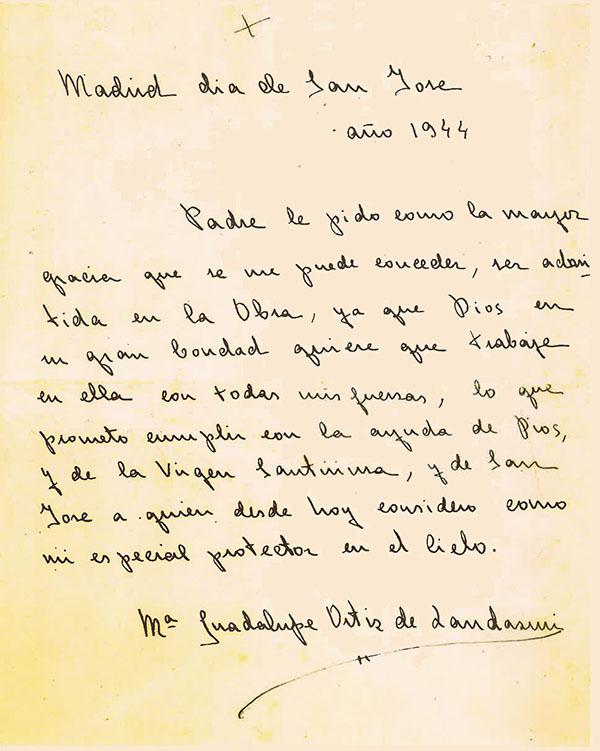 +
Madrid dia de San Jose
año 1944
Padre le pido como la mayor
gracia que se me puede conceder, ser admi
tida en la Obra, ya que Dios en
su gran bondad quiere que trabaje
en ella con todas mis fuersas, lo que
prometo cumplir con la ayuda de Dios,
y de la Virgen Santisima, y de San
Jose a quien desde hoy considero como
mi especial protector en el Cielo.
Mª Guadalupe Ortiz de Landasuri